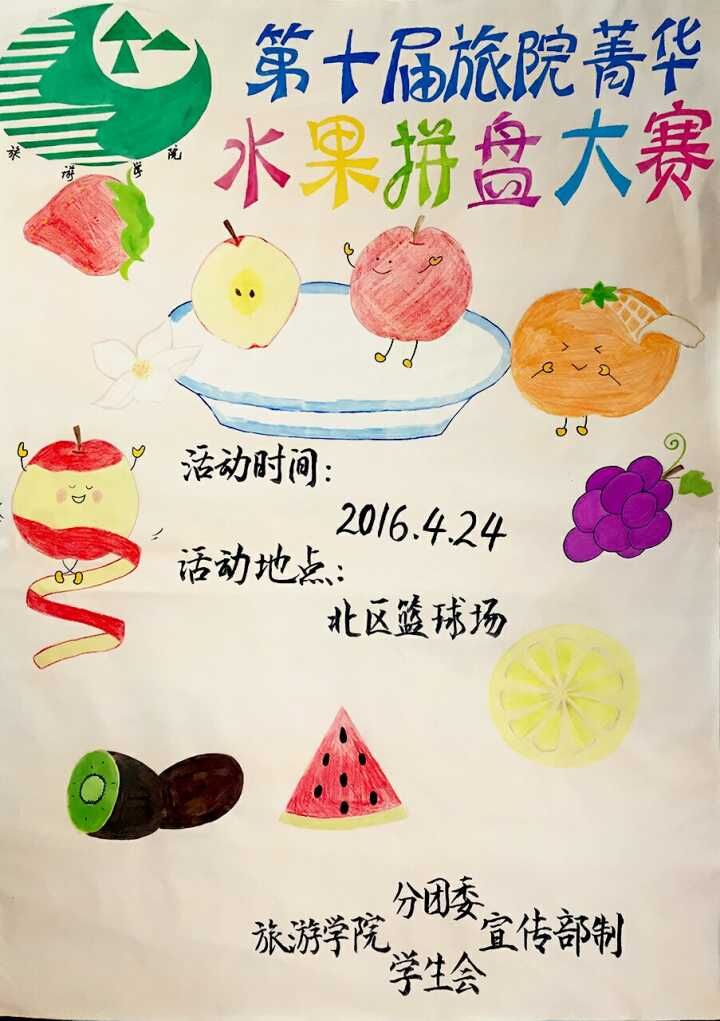 第十届旅院菁华
水果拼盘大赛
旅游学院
活动时间：
2016.4.24
活动地点：
北区篮球场
分团委
旅游学院 宣传部制
学生会